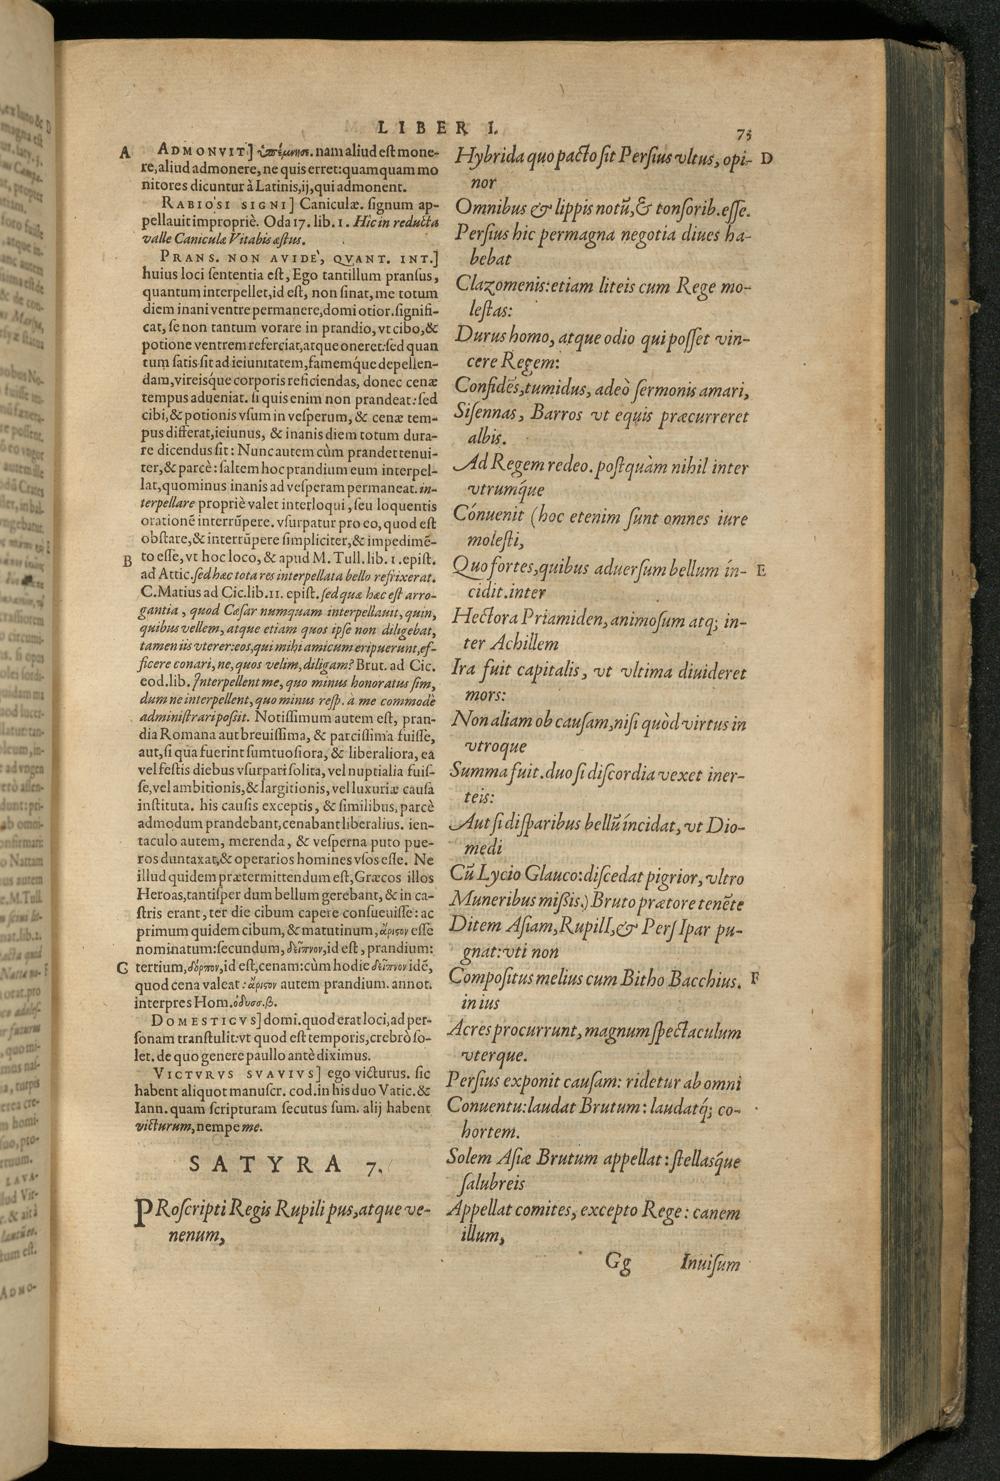 LIBER I.
75
A
ADMONVIT] ὑπέμνησε. nam aliud est mone-
re, aliud admonere, ne quis erret: quamquam mo
nitores dicuntur à Latinis, ij, qui admonent.
RABIOSI SIGNI] Caniculæ. signum ap-
pellauit impropriè. Oda 17. lib. 1. Hic in reducta
valle Caniculæ Vitabis æstus.
PRANS. NON AVIDE', QVANT. INT.]
huius loci sententia est, Ego tantillum pransus,
quantum interpellet, id est, non sinat, me totum
diem inani ventre permanere, domi otior. signifi-
cat, se non tantum vorare in prandio, vt cibo, &
potione ventrem referciat, atque oneret: sed quan
tum satis sit ad ieiunitatem, famemq́ue depellen-
dam, vireisq́ue corporis reficiendas, donec cenæ
tempus adueniat. si quis enim non prandeat: sed
cibi, & potionis vsum in vesperum, & cenæ tem-
pus differat, ieiunus, & inanis diem totum dura-
re dicendus sit: Nunc autem cùm prandet tenui-
ter, & parcè: saltem hoc prandium eum interpel-
lat, quominus inanis ad vesperam permaneat. in-
terpellare propriè valet interloqui, seu loquentis
orationē interrūpere. vsurpatur pro eo, quod est
obstare, & interrūpere simpliciter, & impedimē-
B
to esse, vt hoc loco, & apud M. Tull. lib. 1. epist.
ad Attic. sed hæc tota res interpellata bello refrixerat.
C. Matius ad Cic. lib. 11. epist. sed quæ hæc est arro-
gantia, quod Cæsar numquam interpellauit, quin,
quibus vellem, atque etiam quos ipse non diligebat,
tamen iis vterer: eos, qui mihi amicum eripuerunt, ef-
ficere conari, ne, quos velim, diligam? Brut. ad Cic.
eod. lib. Interpellent me, quo minus honoratus sim,
dum ne interpellent, quo minus resp. à me commodè
administrari possit. Notissimum autem est, pran-
dia Romana aut breuissima, & parcissima fuisse,
aut, si qua fuerint sumtuosiora, & liberaliora, ea
vel festis diebus vsurpari solita, vel nuptialia fuis-
se, vel ambitionis, & largitionis, vel luxuriæ causa
instituta. his causis exceptis, & similibus, parcè
admodum prandebant, cenabant liberalius. ien-
taculo autem, merenda, & vesperna puto pue-
ros duntaxat, & operarios homines vsos esse. Ne
illud quidem prætermittendum est, Græcos illos
Heroas, tantisper dum bellum gerebant, & in ca-
stris erant, ter die cibum capere consueuisse: ac
primum quidem cibum, & matutinum, ἄριστον esse
nominatum: secundum, δεῖπνον, id est, prandium:
C
tertium, δόρπον, id est, cenam: cùm hodie δεῖπνον idē,
quod cena valeat: ἄριστον autem prandium. annot.
interpres Hom. ὀδυσσ. β.
DOMESTICVS] domi. quod erat loci, ad per-
sonam transtulit: vt quod est temporis, crebrò so-
let. de quo genere paullo antè diximus.
VICTVRVS SVAVIVS] ego victurus. sic
habent aliquot manuscr. cod. in his duo Vatic. &
Iann. quam scripturam secutus sum. alij habent
victurum, nempe me.
SATYRA 7.
PRoscripti Regis Rupili pus, atque ve-
nenum,
Hybrida quo pacto sit Persius vltus, opi-
D
nor
Omnibus & lippis notū, & tonsorib. esse.
Persius hic permagna negotia diues ha-
bebat
Clazomenis: etiam liteis cum Rege mo-
lestas:
Durus homo, atque odio qui posset vin-
cere Regem:
Confidēs, tumidus, adeò sermonis amari,
Sisennas, Barros vt equis præcurreret
albis.
Ad Regem redeo. postquàm nihil inter
vtrumq́ue
Conuenit (hoc etenim sunt omnes iure
molesti,
Quo fortes, quibus aduersum bellum in-
E
cidit. inter
Hectora Priamiden, animosum atq; in-
ter Achillem
Ira fuit capitalis, vt vltima diuideret
mors:
Non aliam ob causam, nisi quòd virtus in
vtroque
Summa fuit. duo si discordia vexet iner-
teis:
Aut si disparibus bellū incidat, vt Dio-
medi
Cū Lycio Glauco: discedat pigrior, vltro
Muneribus missis.) Bruto prætore tenēte
Ditem Asiam, RupilI, & PersI par pu-
gnat: vti non
Compositus melius cum Bitho Bacchius.
F
in ius
Acres procurrunt, magnum spectaculum
vterque.
Persius exponit causam: ridetur ab omni
Conuentu: laudat Brutum: laudatq́; co-
hortem.
Solem Asiæ Brutum appellat: stellasq́ue
salubreis
Appellat comites, excepto Rege: canem
illum,
Gg
Inuisum